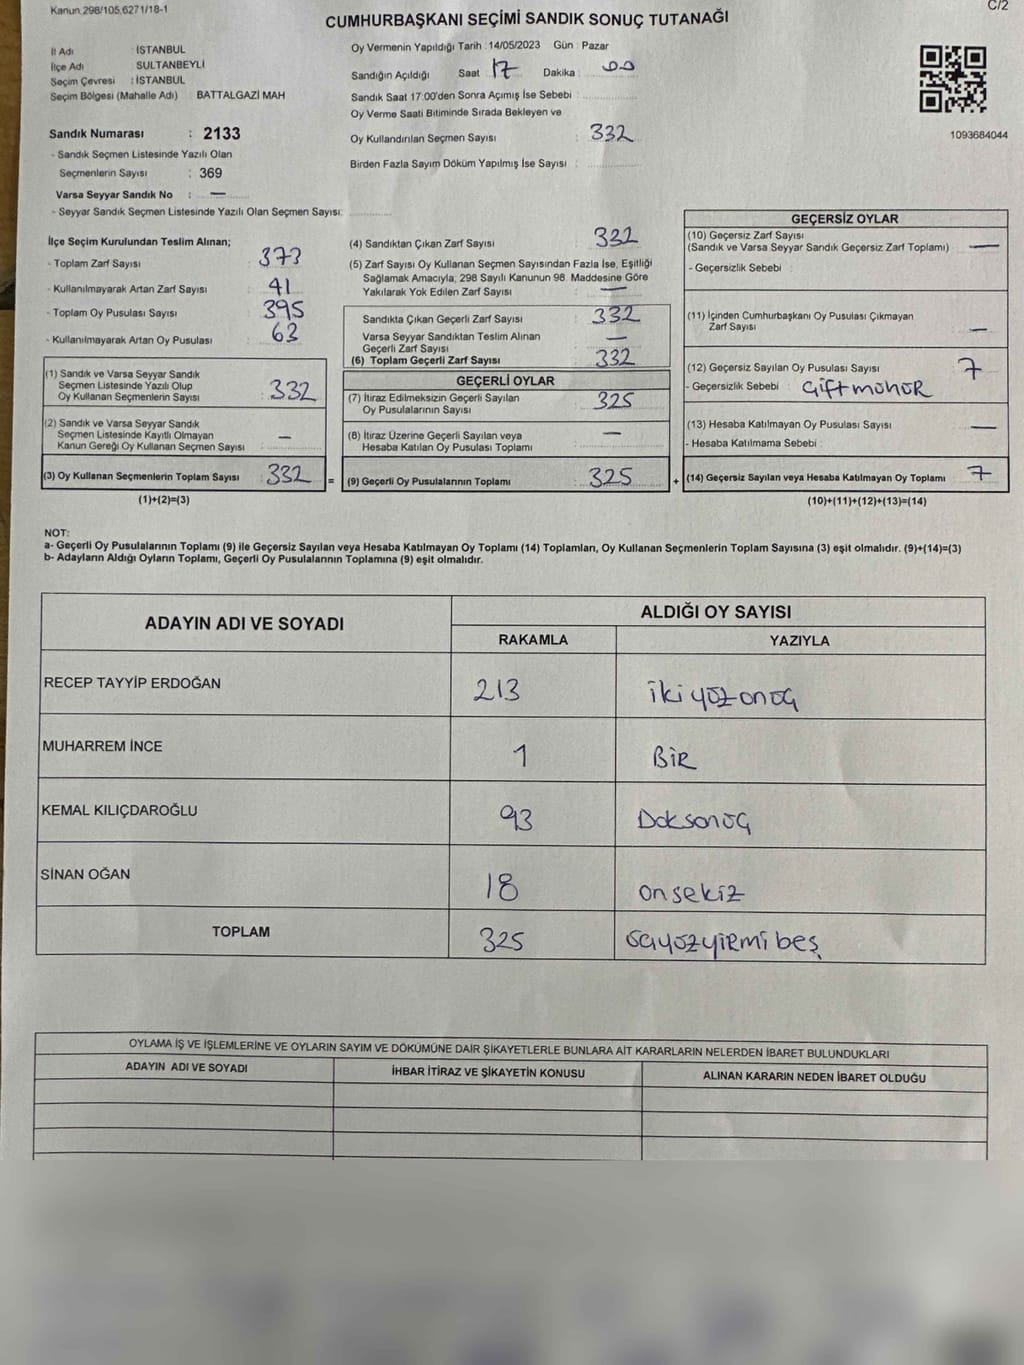 Kanun 298/105,6271/18-1
C/2
CUMHURBAŞKANI SEÇİMİ SANDIK SONUÇ TUTANAĞI
İl Adı : İSTANBUL
İlçe Adı : SULTANBEYLİ
Seçim Çevresi : İSTANBUL
Seçim Bölgesi (Mahalle Adı) BATTALGAZİ MAH
Oy Vermenin Yapıldığı Tarih : 14/05/2023 Gün : Pazar
Sandığın Açıldığı Saat 17 Dakika 00
Sandık Saat 17:00'den Sonra Açımış İse Sebebi :
Oy Verme Saati Bitiminde Sırada Bekleyen ve
Oy Kullandırılan Seçmen Sayısı : 332
Birden Fazla Sayım Döküm Yapılmış İse Sayısı :
1093684044
Sandık Numarası : 2133
- Sandık Seçmen Listesinde Yazılı Olan
Seçmenlerin Sayısı : 369
Varsa Seyyar Sandık No : —
- Seyyar Sandık Seçmen Listesinde Yazılı Olan Seçmen Sayısı:
İlçe Seçim Kurulundan Teslim Alınan;
- Toplam Zarf Sayısı : 373
- Kullanılmayarak Artan Zarf Sayısı : 41
- Toplam Oy Pusulası Sayısı : 395
- Kullanılmayarak Artan Oy Pusulası : 63
(1) Sandık ve Varsa Seyyar Sandık
Seçmen Listesinde Yazılı Olup
Oy Kullanan Seçmenlerin Sayısı : 332
(2) Sandık ve Varsa Seyyar Sandık
Seçmen Listesinde Kayıtlı Olmayan
Kanun Gereği Oy Kullanan Seçmen Sayısı : —
(3) Oy Kullanan Seçmenlerin Toplam Sayısı : 332 =
(1)+(2)=(3)
(4) Sandıktan Çıkan Zarf Sayısı : 332
(5) Zarf Sayısı Oy Kullanan Seçmen Sayısından Fazla İse, Eşitliği
Sağlamak Amacıyla, 298 Sayılı Kanunun 98. Maddesine Göre
Yakılarak Yok Edilen Zarf Sayısı : —
Sandıkta Çıkan Geçerli Zarf Sayısı : 332
Varsa Seyyar Sandıktan Teslim Alınan
Geçerli Zarf Sayısı : —
(6) Toplam Geçerli Zarf Sayısı : 332
GEÇERLİ OYLAR
(7) İtiraz Edilmeksizin Geçerli Sayılan
Oy Pusulalarının Sayısı : 325
(8) İtiraz Üzerine Geçerli Sayılan veya
Hesaba Katılan Oy Pusulası Toplamı : —
(9) Geçerli Oy Pusulalarının Toplamı : 325 +
GEÇERSİZ OYLAR
(10) Geçersiz Zarf Sayısı
(Sandık ve Varsa Seyyar Sandık Geçersiz Zarf Toplamı) —
- Geçersizlik Sebebi :
(11) İçinden Cumhurbaşkanı Oy Pusulası Çıkmayan
Zarf Sayısı : —
(12) Geçersiz Sayılan Oy Pusulası Sayısı : 7
- Geçersizlik Sebebi : Çift mühür
(13) Hesaba Katılmayan Oy Pusulası Sayısı : —
- Hesaba Katılmama Sebebi :
(14) Geçersiz Sayılan veya Hesaba Katılmayan Oy Toplamı : 7
(10)+(11)+(12)+(13)=(14)
NOT:
a- Geçerli Oy Pusulalarının Toplamı (9) ile Geçersiz Sayılan veya Hesaba Katılmayan Oy Toplamı (14) Toplamları, Oy Kullanan Seçmenlerin Toplam Sayısına (3) eşit olmalıdır. (9)+(14)=(3)
b- Adayların Aldığı Oyların Toplamı, Geçerli Oy Pusulalarının Toplamına (9) eşit olmalıdır.
ADAYIN ADI VE SOYADI
ALDIĞI OY SAYISI
RAKAMLA YAZIYLA
RECEP TAYYİP ERDOĞAN 213 İkiyüzonüç
MUHARREM İNCE 1 BİR
KEMAL KILIÇDAROĞLU 93 Doksanüç
SİNAN OĞAN 18 onsekiz
TOPLAM 325 üçyüzyirmibeş
OYLAMA İŞ VE İŞLEMLERİNE VE OYLARIN SAYIM VE DÖKÜMÜNE DAİR ŞİKAYETLERLE BUNLARA AİT KARARLARIN NELERDEN İBARET BULUNDUKLARI
ADAYIN ADI VE SOYADI İHBAR İTİRAZ VE ŞİKAYETİN KONUSU ALINAN KARARIN NEDEN İBARET OLDUĞU